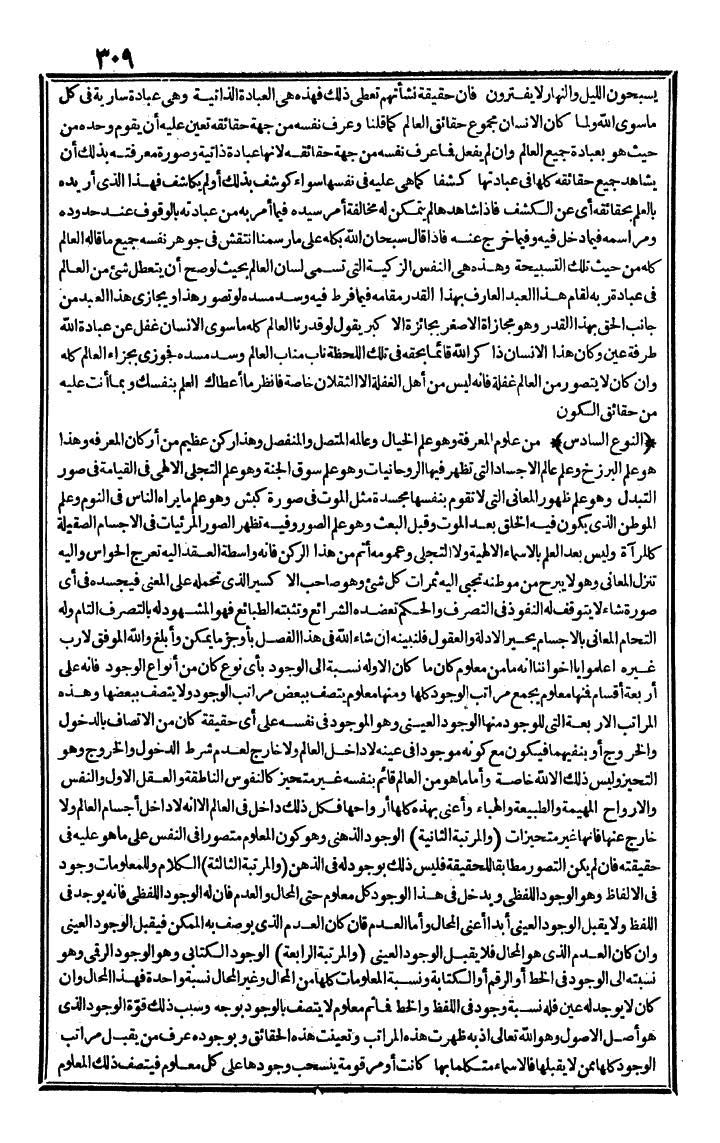 ٣٠٩
يسبحون الليل والنهار لا يفترون فان حقيقة نشأتهم تعطى ذلك فهذه هى العبادة الذاتية وهى عبادة سارية فى كل
ماسوى الله ولما كان الانسان مجموع حقائق العالم كما قلنا وعرف نفسه من جهة حقائقه تعين عليه أن يقوم وحده من
حيث هو بعبادة جميع العالم وان لم يفعل فما عرف نفسه من جهة حقائقه لانها عبادة ذاتية وصورة معرفته بذلك أن
يشاهد جميع حقائقه كلها فى عبادتها كشفا كما هى عليه فى نفسها سواء كوشف بذلك أو لم يكاشف فهذا الذى أريده
بالعلم بحقائقه أى عن الكشف فاذا شاهدها لم يتمكن له مخالفة أمر سيده فيما أمر به من عبادته بالوقوف عند حدوده
ومراسمه فيما دخل فيه وفيما خرج عنه فاذا قال سبحان الله بكله على مارسمنا انتقش فى جوهر نفسه جميع ما قاله العالم
كله من حيث تلك التسبيحة وهذه هى النفس الزكية التى تسمى لسان العالم بحيث لو صح أن يتعطل شئ من العالم
فى عبادة ربه لقام هذا العبد العارف بهذا القدر مقامه فيما فرط فيه وسد مسده لو تصور هذا ويجازى هذا العبد من
جانب الحق بهذا القدر وهو مجازاة الاصغر بجائزة الاكبر يقول لو قدرنا العالم كله ماسوى الانسان غفل عن عبادة الله
طرفة عين وكان هذا الانسان ذا كر الله قائما بحقه فى تلك اللحظة ناب مناب العالم وسد مسده فوزى بجزاء العالم كله
وان كان لا يتصور من العالم غفلة فانه ليس من أهل الغفلة الا الثقلان خاصة فانظر ما أعطاك العلم بنفسك وبما أنت عليه
من حقائق الكون
﴿النوع السادس﴾ من علوم المعرفة وهو علم الخيال وعالمه المتصل والمنفصل وهذا ركن عظيم من أركان المعرفه وهذا
هو علم البرزخ وعلم عالم الاجساد التى تظهر فيها الروحانيات وهو علم سوق الجنة وهو علم التجلى الالهى فى القيامة فى صور
التبدل وهو علم ظهور المعانى التى لا تقوم بنفسها مجسدة مثل الموت فى صورة كبش وهو علم ما يراه الناس فى النوم وعلم
الموطن الذى يكون فيه الخلق بعد الموت وقبل البعث وهو علم الصور وفيه تظهر الصور المرئيات فى الاجسام الصقيلة
كالمرآة وليس بعد العلم بالاسماء الالهية ولا التجلى وعمومه أتم من هذا الركن فانه واسطة العقد اليه تعرج الحواس واليه
تنزل المعانى وهو لا يبرح من موطنه تجبى اليه ثمرات كل شئ وهو صاحب الاكسير الذى تحمله على المعنى فيجسده فى أى
صورة شاء لا يتوقف له النفوذ فى التصرف والحكم تعضده الشرائع وتثبته الطبائع فهو المشهود له بالتصرف التام وله
التحام المعانى بالاجسام يحير الادلة والعقول فلنبينه ان شاء الله فى هذا الفصل بأوجز ما يمكن وأبلغ والله الموفق لا رب
غيره اعلموا يا اخواننا انه ما من معلوم كان ما كان الاوله نسبة الى الوجود بأى نوع كان من أنواع الوجود فانه على
أربعة أقسام فمنها معلوم يجمع مراتب الوجود كلها ومنها معلوم يتصف ببعض مراتب الوجود ولا يتصف ببعضها وهذه
المراتب الاربعة التى للوجود منها الوجود العينى وهو الموجود فى نفسه على أى حقيقة كان من الاتصاف بالدخول
والخروج أو بنفيهما فيكون مع كونه موجودا فى عينه لاداخل العالم ولا خارج لعدم شرط الدخول والخروج وهو
التحيز وليس ذلك الا لله خاصة وأما ما هو من العالم قائم بنفسه غير متحيز كالنفوس الناطقة والعقل الاول والنفس
والارواح المهيمة والطبيعة والهباء وأعنى بهذه كلها أرواحها فكل ذلك داخل فى العالم الا انه لا داخل أجسام العالم ولا
خارج عنها فانها غير متحيزات (والمرتبة الثانية) الوجود الذهنى وهو كون المعلوم متصورا فى النفس على ما هو عليه فى
حقيقته فان لم يكن التصور مطابقا للحقيقة فليس ذلك بوجود له فى الذهن (والمرتبة الثالثة) الكلام وللمعلومات وجود
فى الالفاظ وهو الوجود اللفظى ويدخل فى هذا الوجود كل معلوم حتى المحال والعدم فان له الوجود اللفظى فانه يوجد فى
اللفظ ولا يقبل الوجود العينى أبدا أعنى المحال وأما العدم فان كان العدم الذى يوصف به الممكن فيقبل الوجود العينى
وان كان العدم الذى هو المحال فلا يقبل الوجود العينى (والمرتبة الرابعة) الوجود الكتابى وهو الوجود الرقمى وهو
نسبته الى الوجود فى الخط أو الرقم أو الكتابة ونسبة المعلومات كلها من المحال وغير المحال نسبة واحدة فهذا المحال وان
كان لا يوجد له عين فله نسبة وجود فى اللفظ والخط فما ثم معلوم لا يتصف بالوجود بوجه وسبب ذلك قوة الوجود الذى
هو أصل الاصول وهو الله تعالى اذ به ظهرت هذه المراتب وتعينت هذه الحقائق وبوجوده عرف من يقبل مراتب
الوجود كلها ممن لا يقبلها فالاسماء متكلما بها كانت أو مرقومة ينسحب وجودها على كل معلوم فيتصف ذلك المعلوم